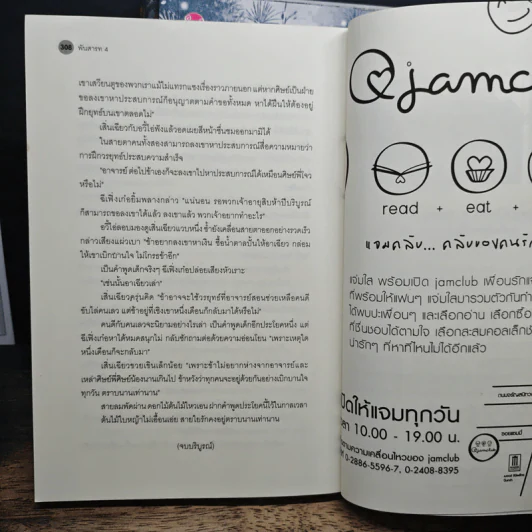 308 พันสารท 4
เขาเสวียนดูของพวกเราแม้ไม่แทรกแซงเรื่องราวภายนอก แต่หากศิษย์เป็นฝ่าย
ขอลงเขาหาประสบการณ์ก็อนุญาตตามคำขอทั้งหมด หาได้ฝืนให้ต้องอยู่
ฝึกยุทธ์บนเขาตลอดไม่"
เสิ่นเฉียวกับอวี่ไอ้ฟังแล้วอดเผยสีหน้าชื่นชมออกมามิได้
ในสายตาคนทั้งสองสามารถลงเขาหาประสบการณ์สื่อความหมายว่า
การฝึกวรยุทธ์ประสบความสำเร็จ
"อาจารย์ ต่อไปข้าเองก็จะลงเขาไปหาประสบการณ์ได้เหมือนศิษย์พี่โจว
หรือไม่"
ฉีเฟิ่งเก๋อยิ้มพลางกล่าว "แน่นอน รอพวกเจ้าอายุสิบห้าปีบริบูรณ์
ก็สามารถขอลงเขาได้แล้ว ลงเขาแล้ว พวกเจ้าอยากทำอะไร"
อวี่ไอ้ลอบมองดูเสิ่นเฉียวแวบหนึ่ง ซ้ำยังเคลื่อนสายตาออกอย่างรวดเร็ว
กล่าวเสียงแผ่วเบา "ข้าอยากลงเขาหาเงิน ซื้อน้ำตาลปั้นให้อาเฉียว กล่อม
ให้เขาเบิกบานใจ ไม่โกรธข้าอีก"
เป็นคำพูดเด็กจริงๆ ฉีเฟิ่งเก๋อปล่อยเสียงหัวเราะ
"เช่นนั้นอาเฉียวเล่า"
เสิ่นเฉียวครุ่นคิด "ข้าอาจจะใช้วรยุทธ์ที่อาจารย์สอนช่วยเหลือคนดี
ขับไล่คนเลว แต่ข้าอยู่ที่เชิงเขาหนึ่งเดือนก็กลับมาได้หรือไม่"
คนดีกับคนเลวจะนิยามอย่างไรเล่า เป็นคำพูดเด็กอีกประโยคหนึ่ง แต่
ฉีเฟิ่งเก๋อหาได้หมดสนุกไม่ กลับซักถามต่อด้วยความอ่อนโยน "เพราะเหตุใด
หนึ่งเดือนก็จะกลับมา"
เสิ่นเฉียวขวยเขินเล็กน้อย "เพราะข้าไม่อยากห่างจากอาจารย์และ
เหล่าศิษย์พี่ศิษย์น้องนานเกินไป ข้าหวังว่าทุกคนจะอยู่ด้วยกันอย่างเบิกบานใจ
ทุกวัน ตราบนานเท่านาน"
สายลมพัดผ่าน ดอกไม้ต้นไม้ไหวเอน ฝากคำพูดประโยคนี้ไว้ในกาลเวลา
ต้นไม้ใบหญ้าไม่เสื่อมเฉา สายใยรักคงอยู่ตราบนานเท่านาน
(จบบริบูรณ์)
jamclu
read + eat +
แจมคลับ... คลับของคนรัก
แจ่มใส พร้อมเปิด jamclub เพื่อนรักแจ
ที่พร้อมให้แฟนๆ แจ่มใสมารวมตัวกันทำ
ได้พบปะเพื่อนๆ และเลือกอ่าน เลือกซื้อ
ที่ชื่นชอบได้ตามใจ เลือกสะสมคอลเล็กชั
น่ารักๆ ที่หาที่ไหนไม่ได้อีกแล้ว
ปิดให้แจมทุกวัน
เวลา 10.00 - 19.00 น.
ตามความเคลื่อนไหวของ jamclub
0-2886-5596-7, 0-2408-8395